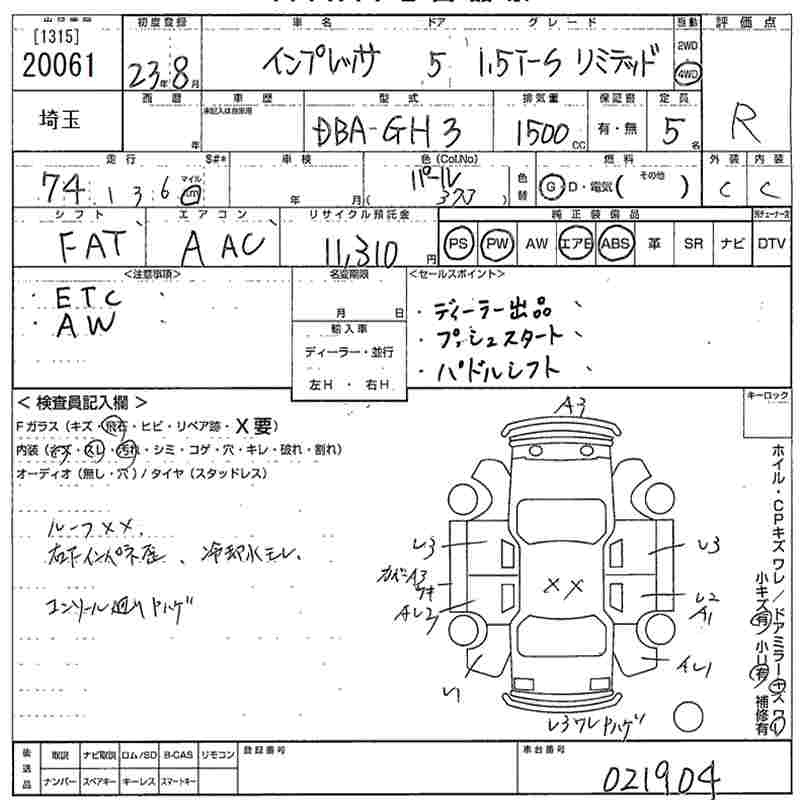 [1315]
20061
初度登録
車名 ドア グレード
駆動
評価点
23年8月
インプレッサ 5 1.5i-S リミテッド
2WD
4WD
埼玉
西暦
車歴
型式
排気量
保証書
定員
未記入は自家用
年
DBA-GH3
1500cc
有・無
5名
R
走行
S#*
車検
色(Col.No)
色替
燃料
外装
内装
74,136
マイル
km
年 月
パール
(373)
G・D・電気( その他 )
C
C
シフト
エアコン
リサイクル預託金
純正装備品
FAT
AAC
11,310円
PS PW AW エアB ABS 革 SR ナビ DTV
<注意事項>
名変期限
<セールスポイント>
・ETC
・AW
月 日
輸入車
ディーラー・並行
左H ・ 右H
・ディーラー出品、
・プッシュスタート、
・パドルシフト、
<検査員記入欄>
キーロック
Fガラス(キズ・飛石・ヒビ・リペア跡・X要)
内装(キズ・スレ・汚れ・シミ・コゲ・穴・キレ・破れ・割れ)
オーディオ(無し・穴)/タイヤ(スタッドレス)
A3
ルーフXX、
右下インパネ座、冷却水モレ、
コンソール廻りハゲ
レ3
カバーA3
ワキ
Aレ2
XX
レ3
レ2
A1
レ1
Aレ1
レ3ワレハゲ
ホイル・CPキズワレ/ドアミラーキズワレ
小キズ有/小U有/補修有
後送品
取説 ナビ取説 ロム/SD B-CAS リモコン
ナンバー スペアキー キーレス スマートキー
登録番号
車台番号
021904